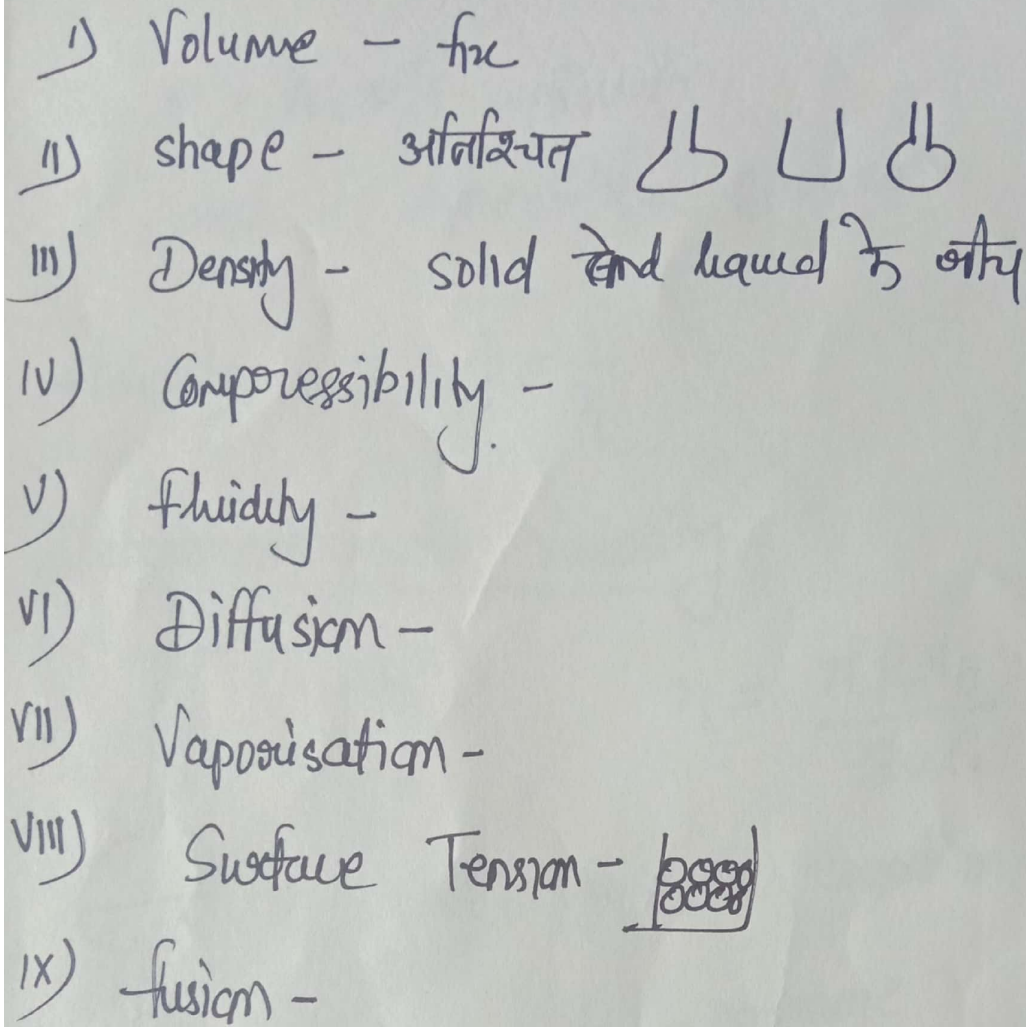 I) Volume - fix
II) shape - अनिश्चित
III) Density - solid and liquid के बीच
IV) Compressibility -
V) fluidity -
VI) Diffusion -
VII) Vaporisation -
VIII) Surface Tension -
IX) fusion -